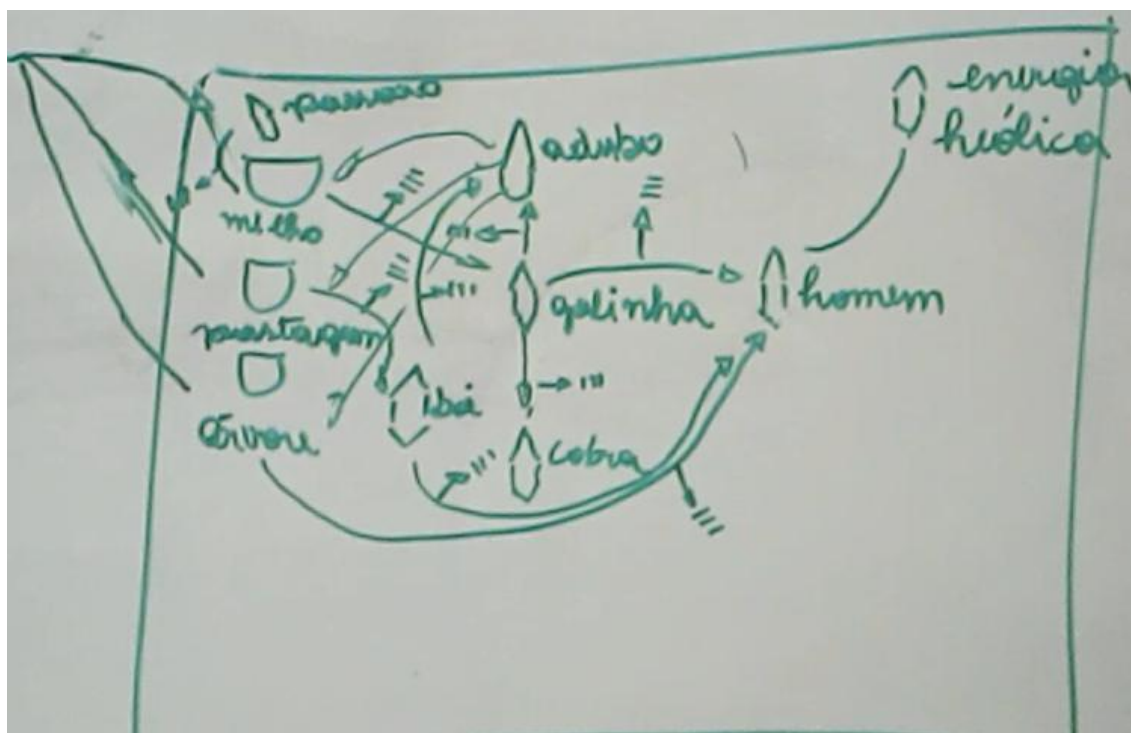 passaro
milho
pastagem
árvore
adubo
galinha
boi
cobra
homem
energia
heólica